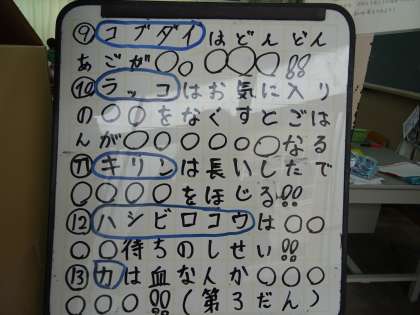 ⑨コブダイはどんどん
あごが○。○○○!!
⑩ラッコはお気に入り
の○○をなくすとごは
んが○○○○○○なる
⑪キリンは長いしたで
○○○○をほじる!!
⑫ハシビロコウは○○
○○待ちのしせい!!
⑬カは血な人か○○○
○○○○!!(第3だん)